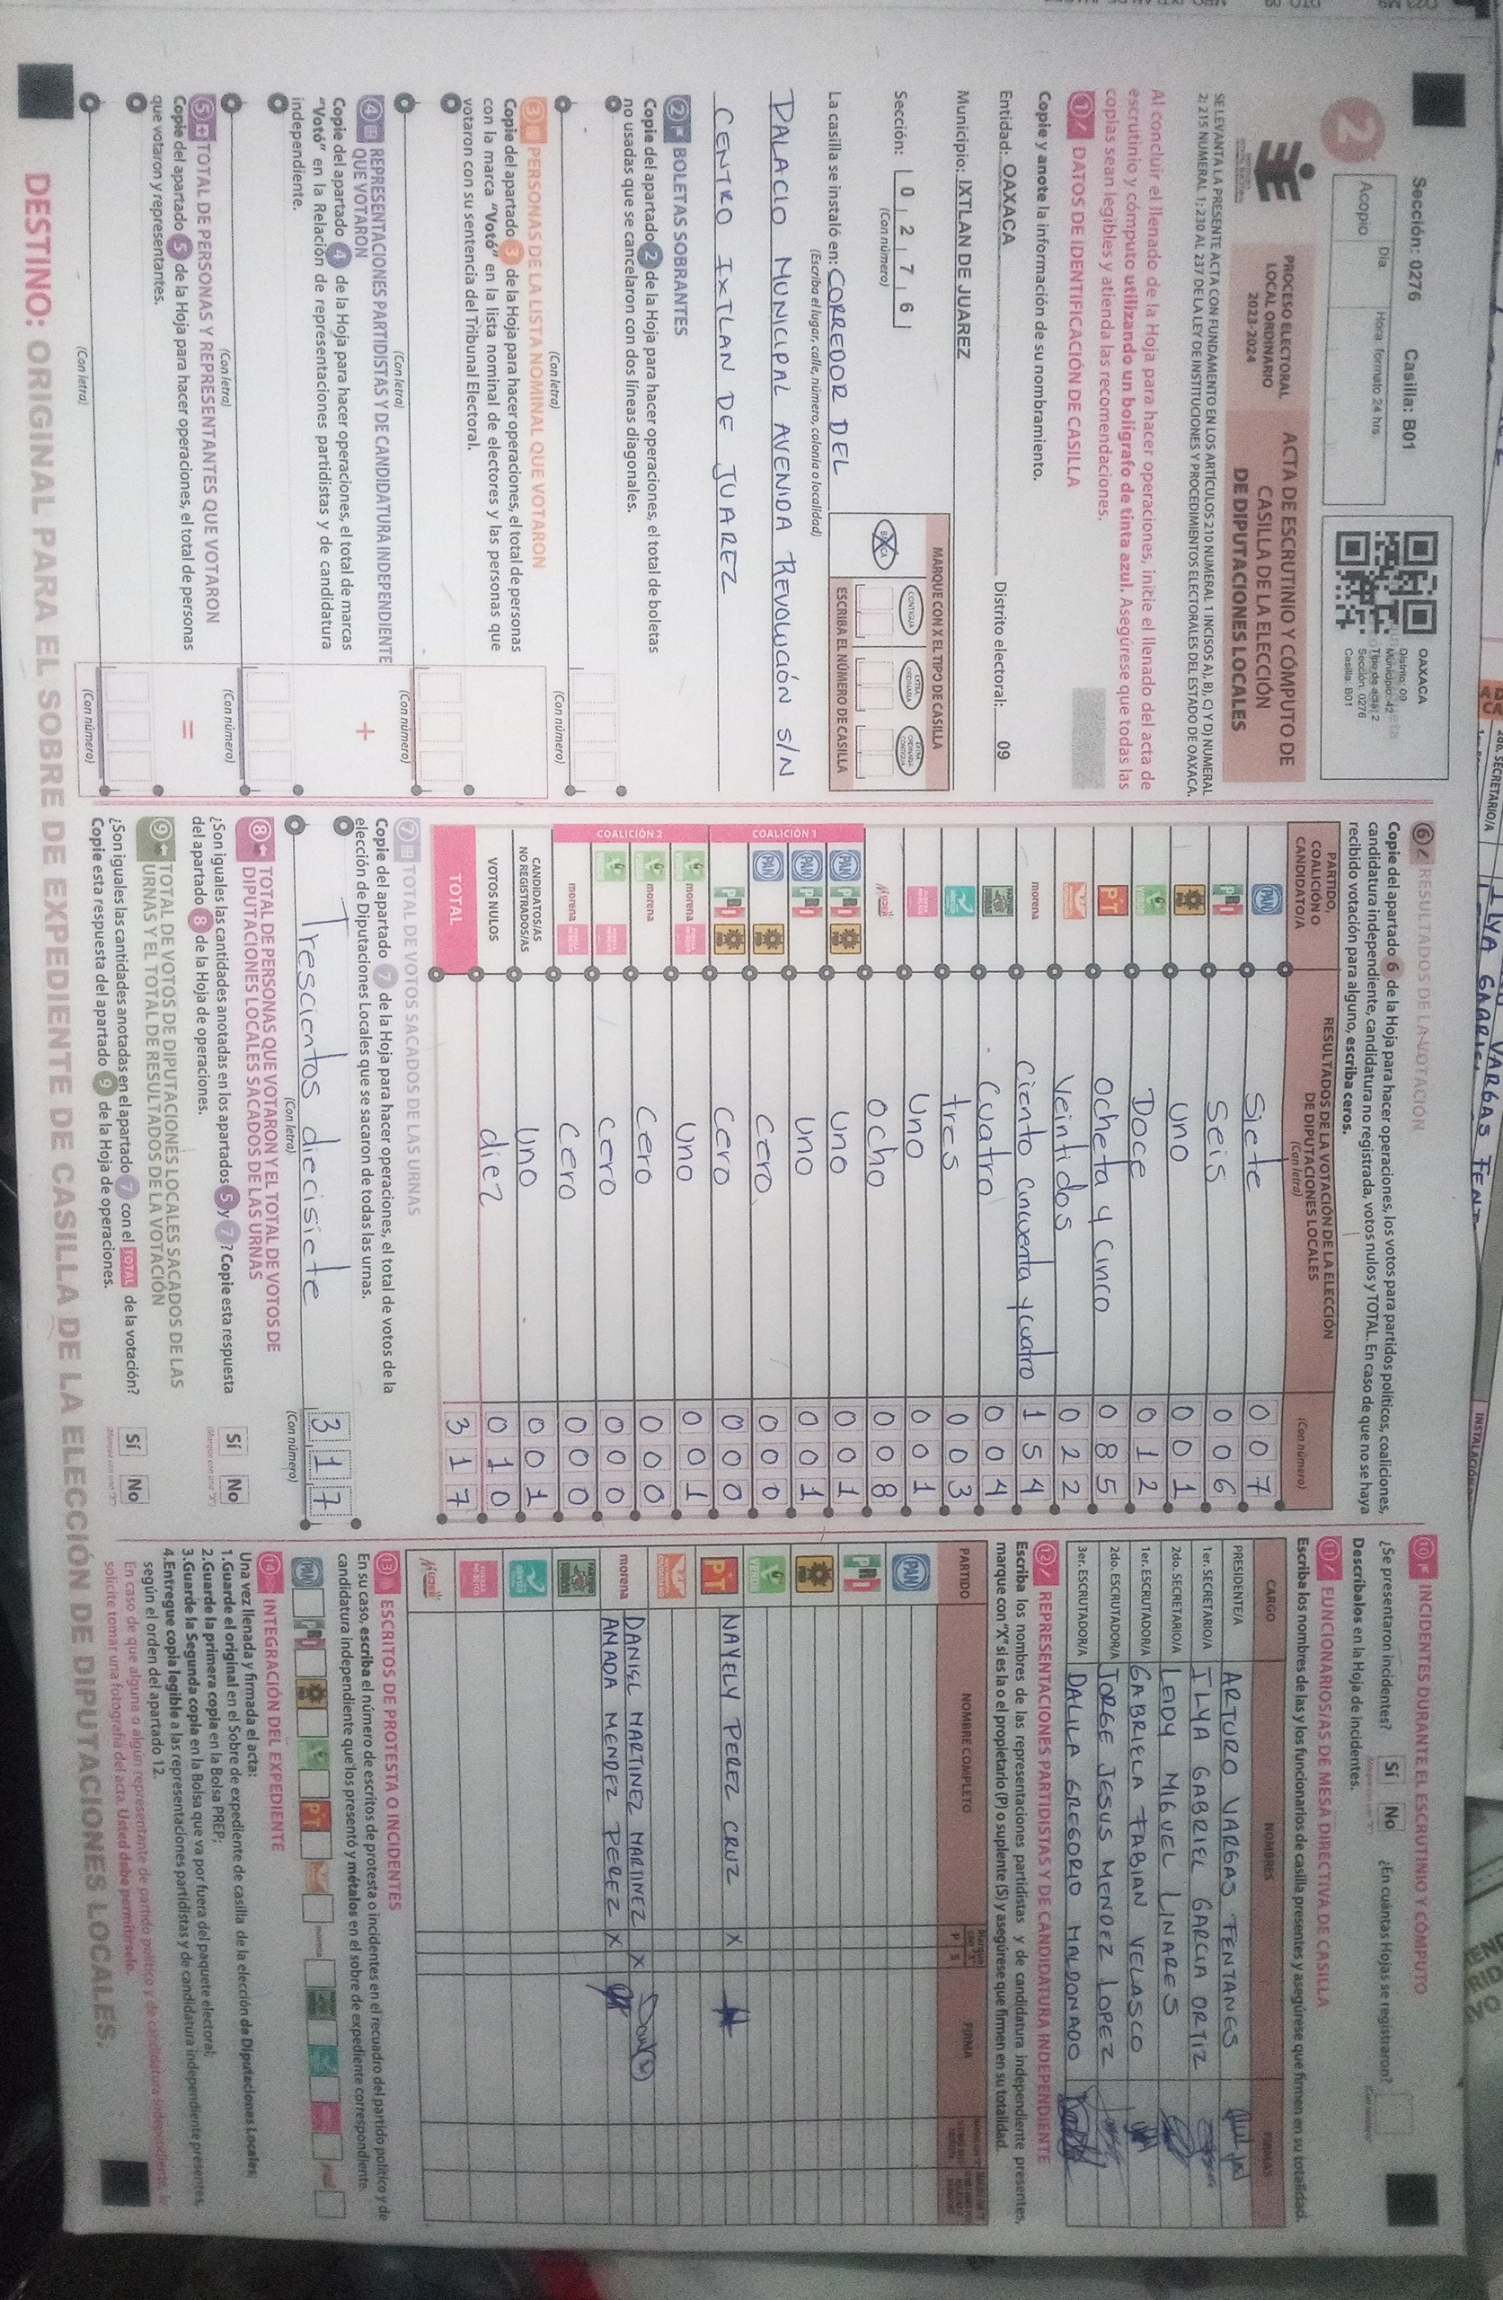 Sección: 0276 Casilla: B01
Día Hora formato 24 hrs
Acopio
2
OAXACA
Distrito: 09
Municipio: 42
Tipo de acta: 2
Sección: 0276
Casilla: B01
PROCESO ELECTORAL
LOCAL ORDINARIO
2023-2024
ACTA DE ESCRUTINIO Y CÓMPUTO DE
CASILLA DE LA ELECCIÓN
DE DIPUTACIONES LOCALES
SE LEVANTA LA PRESENTE ACTA CON FUNDAMENTO EN LOS ARTÍCULOS 210 NUMERAL 1 INCISOS A), B), C) Y D) NUMERAL
2; 215 NUMERAL 1; 230 AL 237 DE LA LEY DE INSTITUCIONES Y PROCEDIMIENTOS ELECTORALES DEL ESTADO DE OAXACA.
Al concluir el llenado de la Hoja para hacer operaciones, inicie el llenado del acta de
escrutinio y cómputo utilizando un bolígrafo de tinta azul. Asegúrese que todas las
copias sean legibles y atienda las recomendaciones.
1 DATOS DE IDENTIFICACIÓN DE CASILLA
Copie y anote la información de su nombramiento.
Entidad: OAXACA Distrito electoral: 09
Municipio: IXTLAN DE JUAREZ
Sección: 0 2 7 6
(Con número)
MARQUE CON X EL TIPO DE CASILLA
BÁSICA CONTIGUA EXTRA ORDINARIA EXTRA ORDINARIA CONTIGUA
ESCRIBA EL NÚMERO DE CASILLA
La casilla se instaló en: CORREDOR DEL
(Escriba el lugar, calle, número, colonia o localidad)
PALACIO MUNICIPAL AVENIDA REVOLUCIÓN S/N
CENTRO IXTLAN DE JUAREZ
2 BOLETAS SOBRANTES
Copie del apartado 2 de la Hoja para hacer operaciones, el total de boletas
no usadas que se cancelaron con dos líneas diagonales.
(Con letra) (Con número)
3 PERSONAS DE LA LISTA NOMINAL QUE VOTARON
Copie del apartado 3 de la Hoja para hacer operaciones, el total de personas
con la marca "Votó" en la lista nominal de electores y las personas que
votaron con su sentencia del Tribunal Electoral.
(Con letra) (Con número)
4 REPRESENTACIONES PARTIDISTAS Y DE CANDIDATURA INDEPENDIENTE
QUE VOTARON
+
Copie del apartado 4 de la Hoja para hacer operaciones, el total de marcas
"Votó" en la Relación de representaciones partidistas y de candidatura
independiente.
(Con letra) (Con número)
5 TOTAL DE PERSONAS Y REPRESENTANTES QUE VOTARON
=
Copie del apartado 5 de la Hoja para hacer operaciones, el total de personas
que votaron y representantes.
(Con letra) (Con número)
6 RESULTADOS DE LA VOTACIÓN
Copie del apartado 6 de la Hoja para hacer operaciones, los votos para partidos políticos, coaliciones,
candidatura independiente, candidatura no registrada, votos nulos y TOTAL. En caso de que no se haya
recibido votación para alguno, escriba ceros.
PARTIDO, COALICIÓN O CANDIDATO/A
RESULTADOS DE LA VOTACIÓN DE LA ELECCIÓN DE DIPUTACIONES LOCALES (Con letra) (Con número)
PAN Siete 007
PRI Seis 006
Uno 001
VERDE Doce 012
PT Ocheta y Cinco 085
Veintidos 022
morena Ciento cincuenta y cuatro 154
Cuatro 004
tres 003
Uno 001
Ocho 008
COALICIÓN 1
PAN PRI Uno 001
PAN PRI Uno 001
PAN Cero 000
PRI Cero 000
COALICIÓN 2
morena Uno 001
morena Cero 000
Cero 000
morena Cero 000
CANDIDATOS/AS
NO REGISTRADOS/AS Uno 001
VOTOS NULOS diez 010
TOTAL 317
7 TOTAL DE VOTOS SACADOS DE LAS URNAS
Copie del apartado 7 de la Hoja para hacer operaciones, el total de votos de la
elección de Diputaciones Locales que se sacaron de todas las urnas.
Trescientos diecisiete 317
(Con letra) (Con número)
8 TOTAL DE PERSONAS QUE VOTARON Y EL TOTAL DE VOTOS DE
DIPUTACIONES LOCALES SACADOS DE LAS URNAS
¿Son iguales las cantidades anotadas en los apartados 5 y 7? Copie esta respuesta
del apartado 8 de la Hoja de operaciones.
Sí No
9 TOTAL DE VOTOS DE DIPUTACIONES LOCALES SACADOS DE LAS
URNAS Y EL TOTAL DE RESULTADOS DE LA VOTACIÓN
¿Son iguales las cantidades anotadas en el apartado 7 con el TOTAL de la votación?
Copie esta respuesta del apartado 9 de la Hoja de operaciones.
Sí No
10 INCIDENTES DURANTE EL ESCRUTINIO Y CÓMPUTO
¿Se presentaron incidentes? Sí No ¿En cuántas Hojas se registraron?
Descríbalos en la Hoja de Incidentes.
11 FUNCIONARIOS/AS DE MESA DIRECTIVA DE CASILLA
Escriba los nombres de las y los funcionarios de casilla presentes y asegúrese que firmen en su totalidad.
CARGO NOMBRES FIRMAS
PRESIDENTE/A ARTURO VARGAS FENTANES
1er. SECRETARIO/A ILYA GABRIEL GARCIA ORTIZ
2do. SECRETARIO/A LEIDY MIGUEL LINARES
1er. ESCRUTADOR/A GABRIELA FABIAN VELASCO
2do. ESCRUTADOR/A JORGE JESUS MENDEZ LOPEZ
3er. ESCRUTADOR/A DALILA GREGORIO MALDONADO
12 REPRESENTACIONES PARTIDISTAS Y DE CANDIDATURA INDEPENDIENTE
Escriba los nombres de las representaciones partidistas y de candidatura independiente presentes,
marque con "X" si es la o el propietario (P) o suplente (S) y asegúrese que firmen en su totalidad.
PARTIDO NOMBRE COMPLETO P S FIRMA
PAN
PRI
VERDE
PT NAYELY PEREZ CRUZ X
morena DANIEL MARTINEZ MARTINEZ X
AMADA MENDEZ PEREZ X
13 ESCRITOS DE PROTESTA O INCIDENTES
En su caso, escriba el número de escritos de protesta o incidentes en el recuadro del partido político y de
candidatura independiente que los presentó y métalos en el sobre de expediente correspondiente.
14 INTEGRACIÓN DEL EXPEDIENTE
Una vez llenada y firmada el acta:
1.Guarde el original en el Sobre de expediente de casilla de la elección de Diputaciones Locales;
2.Guarde la primera copia en la Bolsa PREP;
3.Guarde la Segunda copia en la Bolsa que va por fuera del paquete electoral;
4.Entregue copia legible a las representaciones partidistas y de candidatura independiente presentes,
según el orden del apartado 12.
En caso de que alguna o algún representante de partido político y de candidatura independiente, le
solicite tomar una fotografía del acta. Usted debe permitírselo.
DESTINO: ORIGINAL PARA EL SOBRE DE EXPEDIENTE DE CASILLA DE LA ELECCIÓN DE DIPUTACIONES LOCALES.